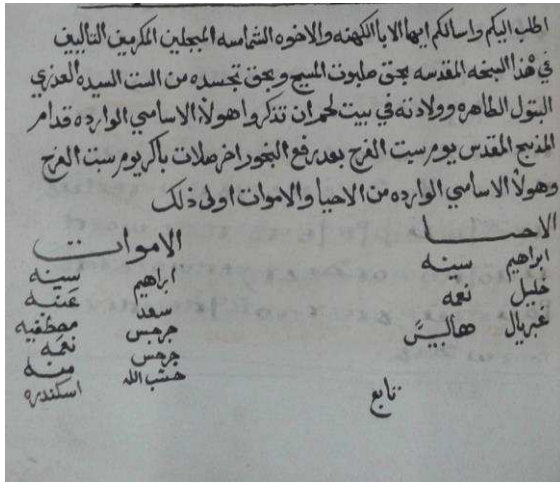 اطلب اليكم واسالكم ايها الابا الكهنه والاخوه الشمامسه المبجلين المكرمين التاليين
في هذا البيعه المقدسه بحق صلبوت المسيح وبحق تجسده من الست السيده العذري
البتول الطاهره وولادته في بيت لحم ان تذكروا هولاء الاسامي الوارده قدام
المذبح المقدس يوم سبت الفرح بعد رفع البخور اخر صلات باكر يوم سبت الفرح
وهولاء الاسامي الوارده من الاحيا والاموات اولى ذلك
الاحيا
ابراهيم سينه
خليل نعمه
غبريال
الاموات
ابراهيم سينه
سعد
جرجس مصطفيه
جرجس نعمه
حشب الله منه
اسكندره
تابع